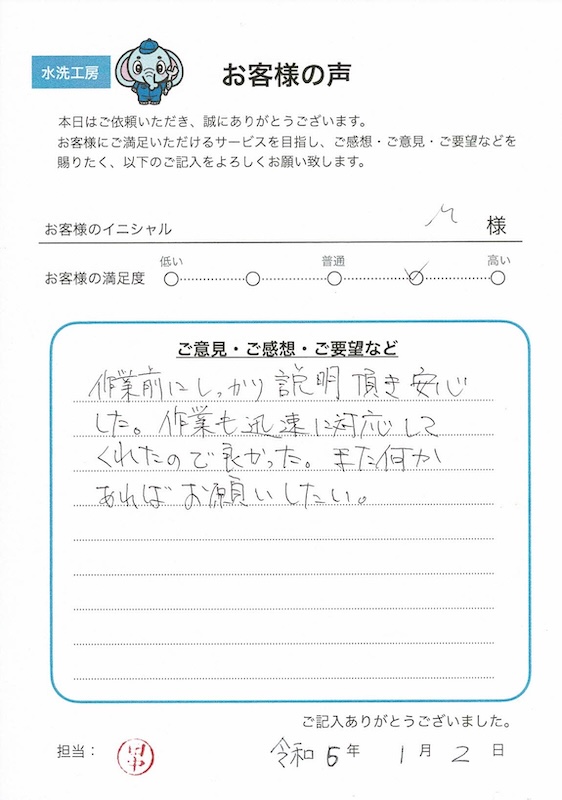 水洗工房
お客様の声
本日はご依頼いただき、誠にありがとうございます。
お客様にご満足いただけるサービスを目指し、ご感想・ご意見・ご要望などを
賜りたく、以下のご記入をよろしくお願い致します。
お客様のイニシャル 様
低い 普通 高い
お客様の満足度
ご意見・ご感想・ご要望など
作業前にしっかり説明頂き安心
した。作業も迅速に対応して
くれたので良かった。また何か
あればお願いしたい。
ご記入ありがとうございました。
担当： 令和 年 1月 2日